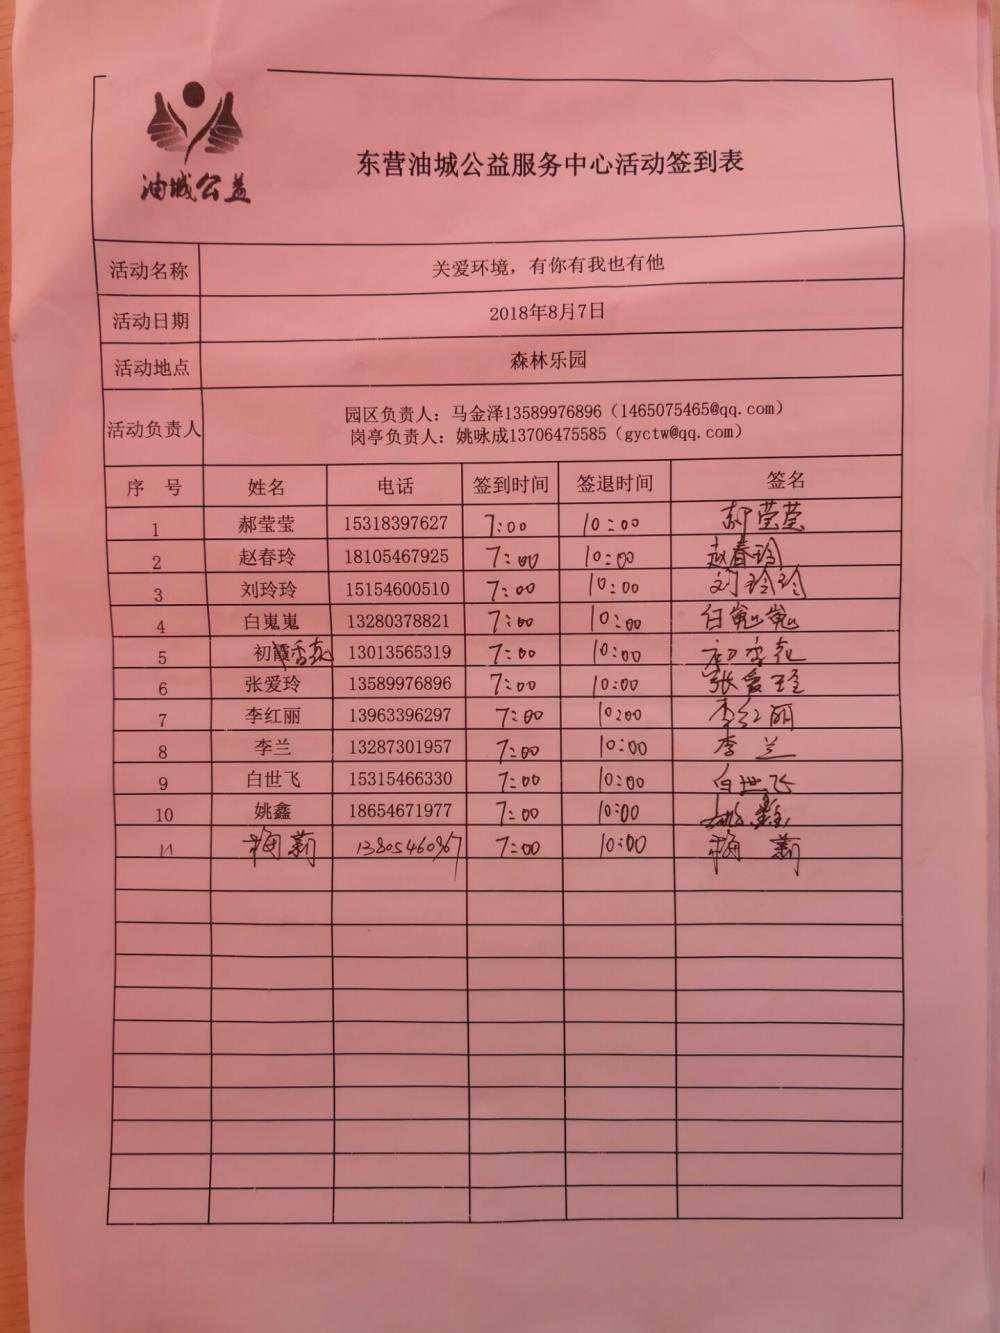 油城公益
东营油城公益服务中心活动签到表
活动名称 关爱环境，有你有我也有他
活动日期 2018年8月7日
活动地点 森林乐园
活动负责人 园区负责人：马金泽13589976896（1465075465@qq.com）
岗亭负责人：姚咏成13706475585（gyctw@qq.com）
序 号 姓名 电话 签到时间 签退时间 签名
1 郝莹莹 15318397627 7:00 10:00 郝莹莹
2 赵春玲 18105467925 7:00 10:00 赵春玲
3 刘玲玲 15154600510 7:00 10:00 刘玲玲
4 白嵬嵬 13280378821 7:00 10:00 白嵬嵬
5 初霞 13013565319 7:00 10:00
6 张爱玲 13589976896 7:00 10:00 张爱玲
7 李红丽 13963396297 7:00 10:00 李红丽
8 李兰 13287301957 7:00 10:00 李兰
9 白世飞 15315466330 7:00 10:00 白世飞
10 姚鑫 18654671977 7:00 10:00 姚鑫
11 梅莉 13805460967 7:00 10:00 梅莉